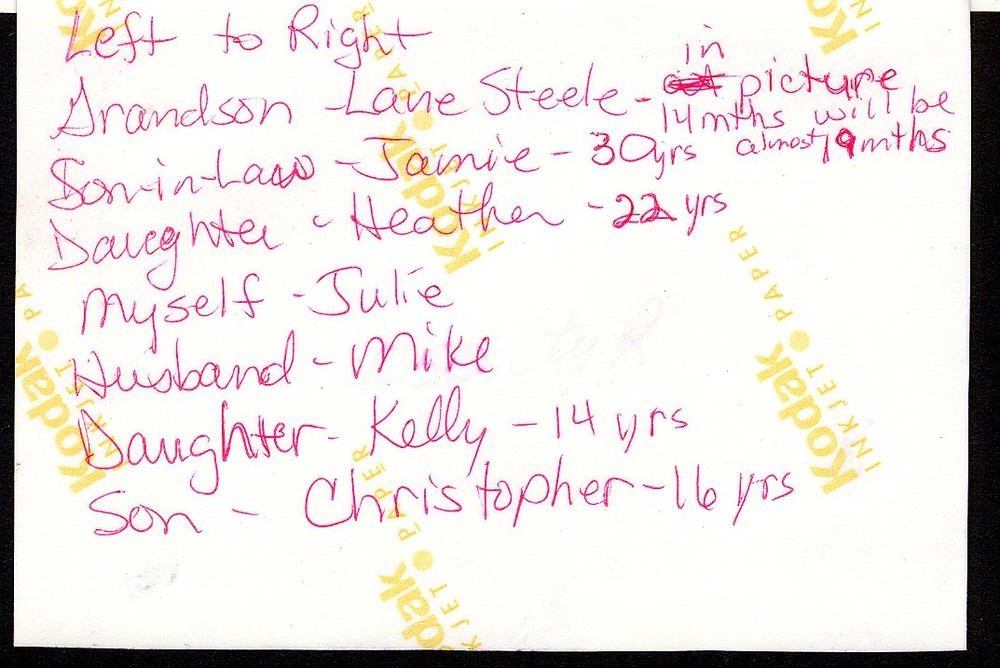 Left to Right
in
Grandson - Lane Steele - picture
14mths will be
Son-in-Law - Jamie - 30yrs almost 19mths
Daughter - Heather - 22 yrs
Myself - Julie
Husband - Mike
Daughter - Kelly - 14 yrs
Son - Christopher - 16 yrs
Kodak
INKJET PAPER
Kodak
INKJET PAPER
Kodak
INKJET PAPER
Kodak
INKJET PAPER
Kodak
INKJET
Kodak
INKJET